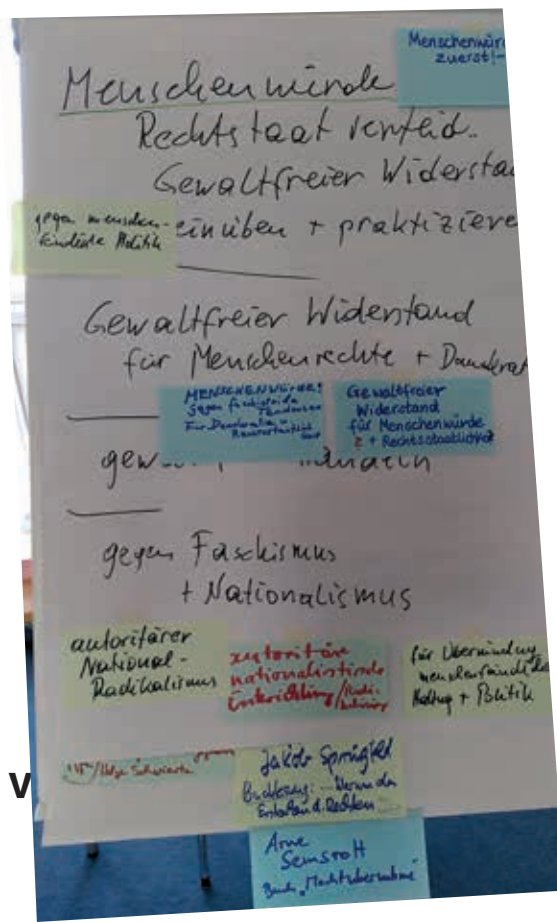 Menschenwür
zuerst!
Menschenwürde
Rechtstaat verteid.
Gewaltfreier Widersta
gegen menschen-
feindliche Politik
einüben + praktiziere
Gewaltfreier Widerstand
für Menschenrechte + Demokrat
MENSCHENWÜRDE!
Gegen faschistoide
Tendenzen
Für Demokratie
Gewaltfreier
Widerstand
für Menschenwürde
+ Rechtsstaatlichkeit
gew
gegen Faschismus
+ Nationalismus
autoritärer
National-
Radikalismus
autoritäre
nationalistische
Entwicklung
für Überwindung
menschenfeindlicher
Haltung + Politik
Jakob Springfeld
Buchlesung:
Erstarken d. Rechten
Arne
Semsrott
Buch "Machtübernahme"
V